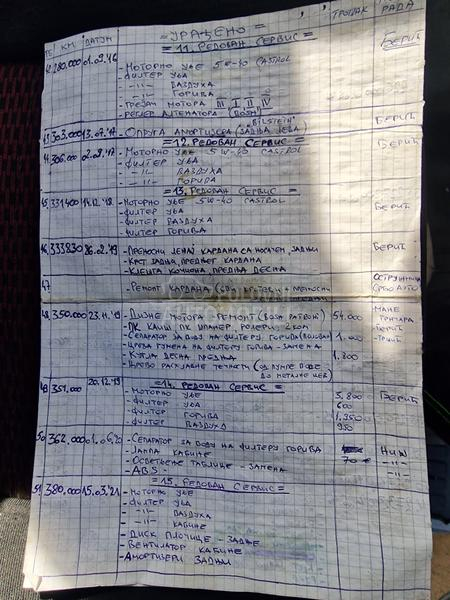 КМ ДАТУМ = УРАЂЕНО = ТРОШАК РАДЊА
= 11. РЕДОВАН СЕРВИС =
42 280.000 01.09.16 - МОТОРНО УЉЕ 5W-40 CASTROL БЕРИЋ
- ФИЛТЕР УЉА
- -II- ВАЗДУХА
- -II- ГОРИВА
- ГРЕЈАЧ МОТОРА III I II IV
- РЕГЛЕР АЛТЕНАТОРА (BOSH)
43 303.000 13.07.17 - ОПРУГА АМОРТИЗЕРА (ЗАДЊА ЛЕВА) "BILSTEIN" БЕРИЋ
= 12. РЕДОВАН СЕРВИС =
44 306.000 02.09.17 - МОТОРНО УЉЕ 5W-40 CASTROL БЕРИЋ
- ФИЛТЕР УЉА
- -II- ВАЗДУХА
- -II- ГОРИВА
= 13. РЕДОВАН СЕРВИС =
45 331400 14.12.18. - МОТОРНО УЉЕ 5W-40 CASTROL БЕРИЋ
- ФИЛТЕР УЉА
- ФИЛТЕР ВАЗДУХА
- ФИЛТЕР ГОРИВА
46 333830 26.02.19 - ПРЕНОСНИ ЛЕЖАЈ КАРДАНА СА НОСАЧЕМ, ЗАДЊИ БЕРИЋ
- КРСТ ЗАДЊИ, ПРЕДЊЕГ КАРДАНА
- КЉЕШТА КОЧИОНА, ПРЕДЊА ДЕСНА
47 - РЕМОНТ КАРДАНА СРБО АУТО
48 350.000 23.11.19 - ДИЗНЕ МОТОРА - РЕМОНТ (BOSH PATRONI) 54.000
- ПК КАИШ, ПК ШПАНЕР, РОЛЕРИ, 2 КОМ БЕРИЋ
- СЕПАРАТОР ЗА ВОДУ НА ФИЛТЕРУ ГОРИВА
- ЦРЕВА ГУМЕНА НА ФИЛТЕРУ ГОРИВА - ЗАМЕНА
- КУГЛА ДЕСНА, ПРЕДЊА 1.800
- ЦРЕВО РАСХЛАДНЕ ТЕЧНОСТИ (ОД ПУМПЕ ВОДЕ ДО МЕТАЛНЕ ЦЕВИ)
= 14. РЕДОВАН СЕРВИС =
49 351.000 20.12.19 - МОТОРНО УЉЕ 5.800 БЕРИЋ
- ФИЛТЕР УЉА 600
- ФИЛТЕР ГОРИВА 1.350
- ФИЛТЕР ВАЗДУХА 950
50 362.000 01.09.20 - СЕПАРАТОР ЗА ВОДУ НА ФИЛТЕРУ ГОРИВА НИШ
- ЛАМПА КАБИНЕ 70 -II-
- ОСВЕТЉЕЊЕ ТАБЛИЦЕ - ЗАМЕНА -II-
- ABS -
= 15. РЕДОВАН СЕРВИС =
51 380.000 15.03.21 - МОТОРНО УЉЕ
- ФИЛТЕР УЉА
- -II- ВАЗДУХА
- -II- КАБИНЕ
- ДИСК ПЛОЧИЦЕ - ЗАДЊЕ
- ВЕНТИЛАТОР КАБИНЕ
- АМОРТИЗЕРИ ЗАДЊИ